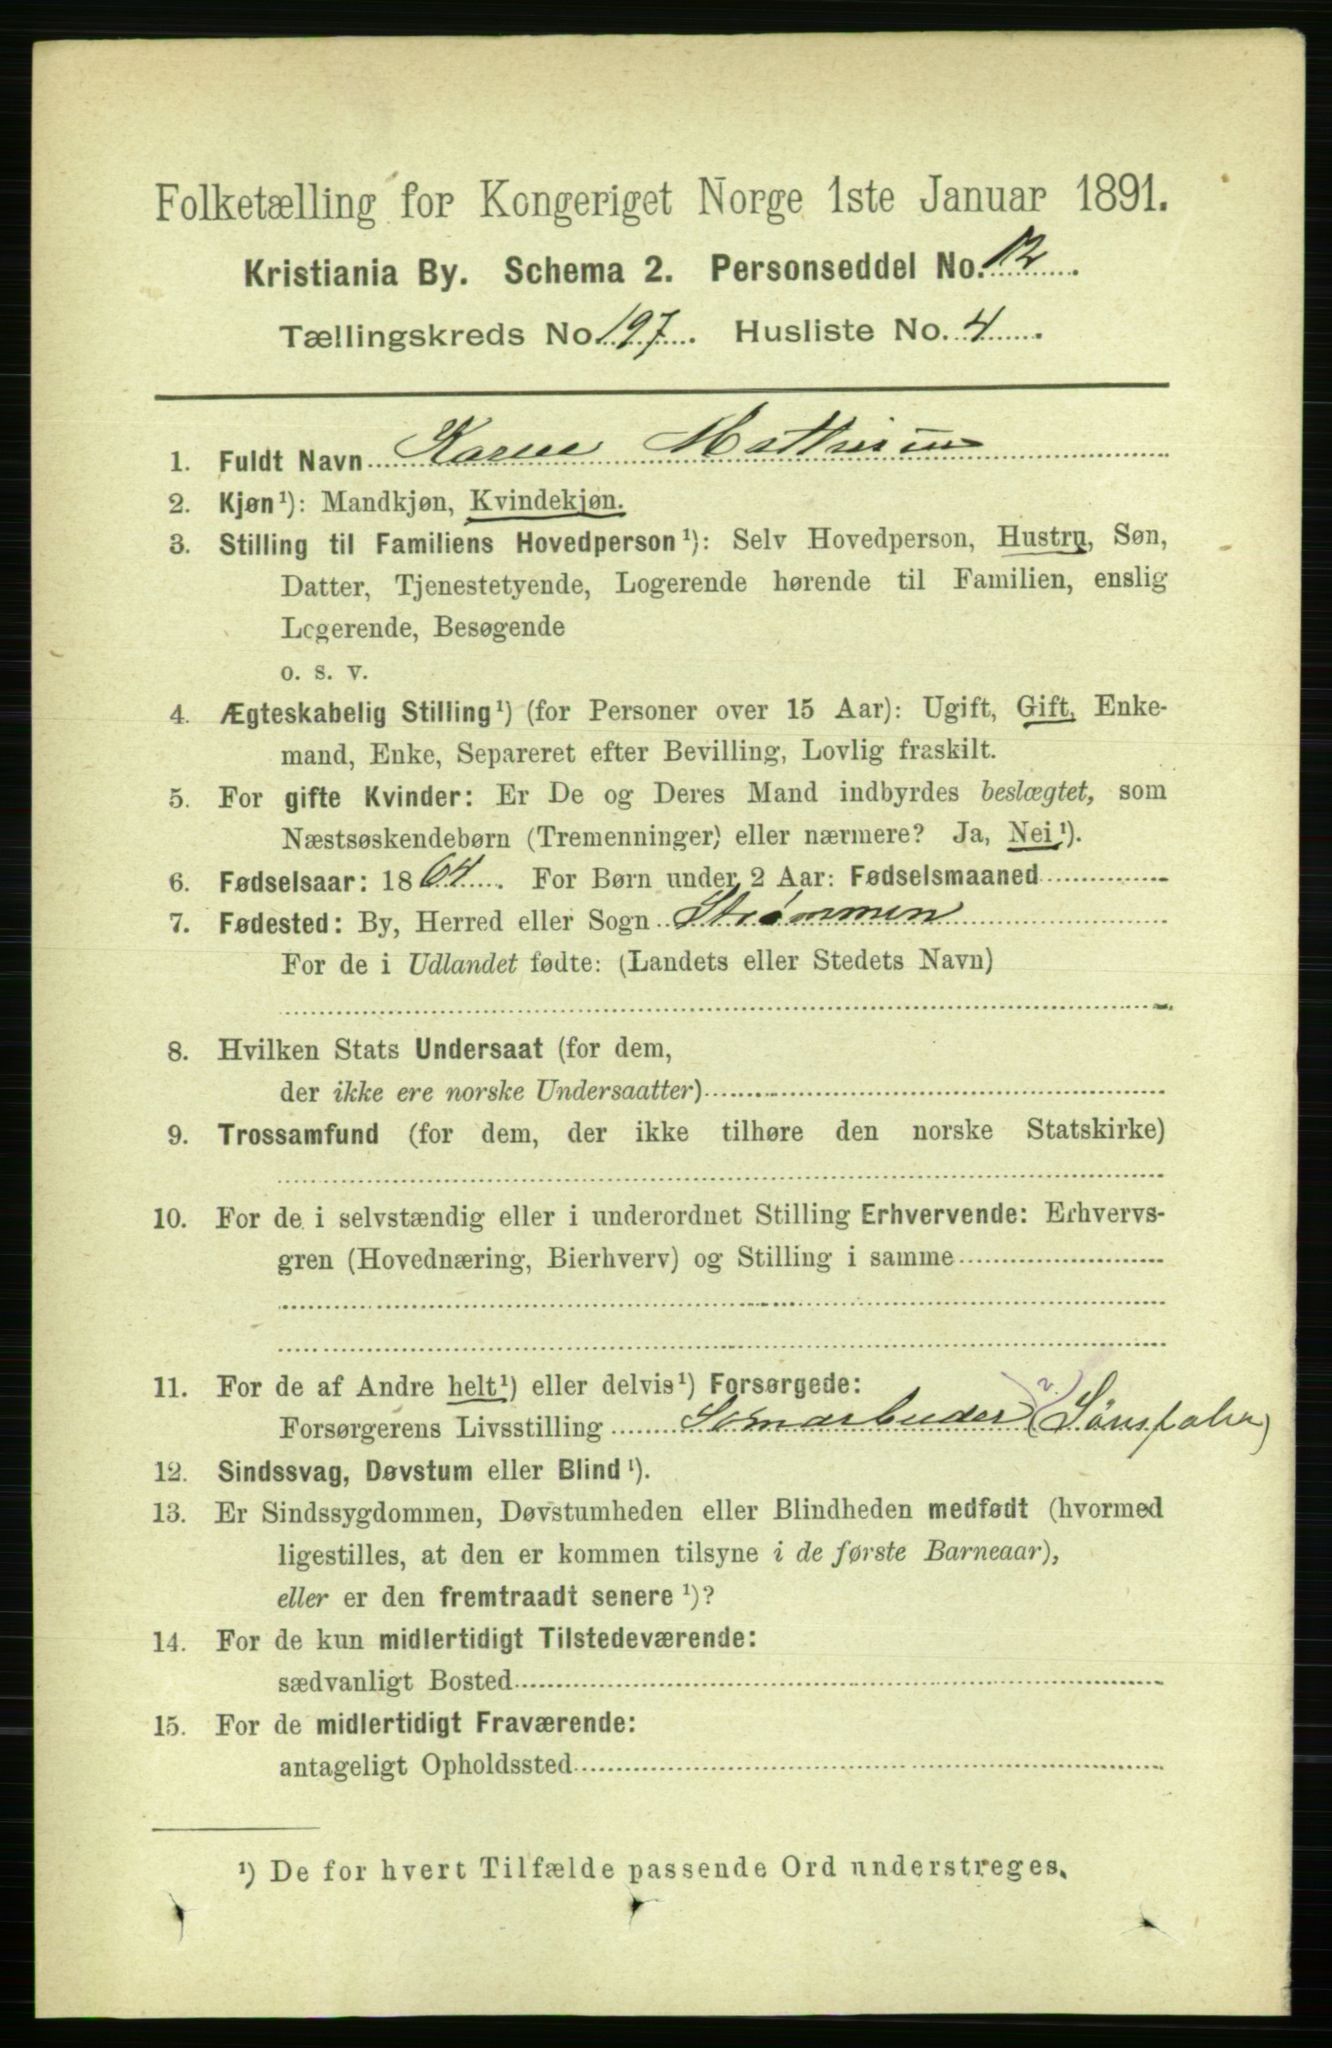 Folketælling for Kongeriget Norge 1ste Januar 1891.
Kristiania By. Schema 2. Personseddel No. 12.
Tællingskreds No. 197. Husliste No. 4.
1. Fuldt Navn Karen Mathisen
2. Kjøn¹): Mandkjøn, Kvindekjøn.
3. Stilling til Familiens Hovedperson¹): Selv Hovedperson, Hustru, Søn,
Datter, Tjenestetyende, Logerende hørende til Familien, enslig
Logerende, Besøgende
o. s. v.
4. Ægteskabelig Stilling¹) (for Personer over 15 Aar): Ugift, Gift, Enke-
mand, Enke, Separeret efter Bevilling, Lovlig fraskilt.
5. For gifte Kvinder: Er De og Deres Mand indbyrdes beslægtet, som
Næstsøskendebørn (Tremenninger) eller nærmere? Ja, Nei¹).
6. Fødselsaar: 1864. For Børn under 2 Aar: Fødselsmaaned
7. Fødested: By, Herred eller Sogn Strømmen
For de i Udlandet fødte: (Landets eller Stedets Navn)
8. Hvilken Stats Undersaat (for dem,
der ikke ere norske Undersaatter)
9. Trossamfund (for dem, der ikke tilhøre den norske Statskirke)
10. For de i selvstændig eller i underordnet Stilling Erhvervende: Erhvervs-
gren (Hovednæring, Bierhverv) og Stilling i samme
11. For de af Andre helt¹) eller delvis¹) Forsørgede:
Forsørgerens Livsstilling
12. Sindssvag, Døvstum eller Blind¹).
13. Er Sindssygdommen, Døvstumheden eller Blindheden medfødt (hvormed
ligestilles, at den er kommen tilsyne i de første Barneaar),
eller er den fremtraadt senere¹)?
14. For de kun midlertidigt Tilstedeværende:
sædvanligt Bosted
15. For de midlertidigt Fraværende:
antageligt Opholdssted
¹) De for hvert Tilfælde passende Ord understreges.